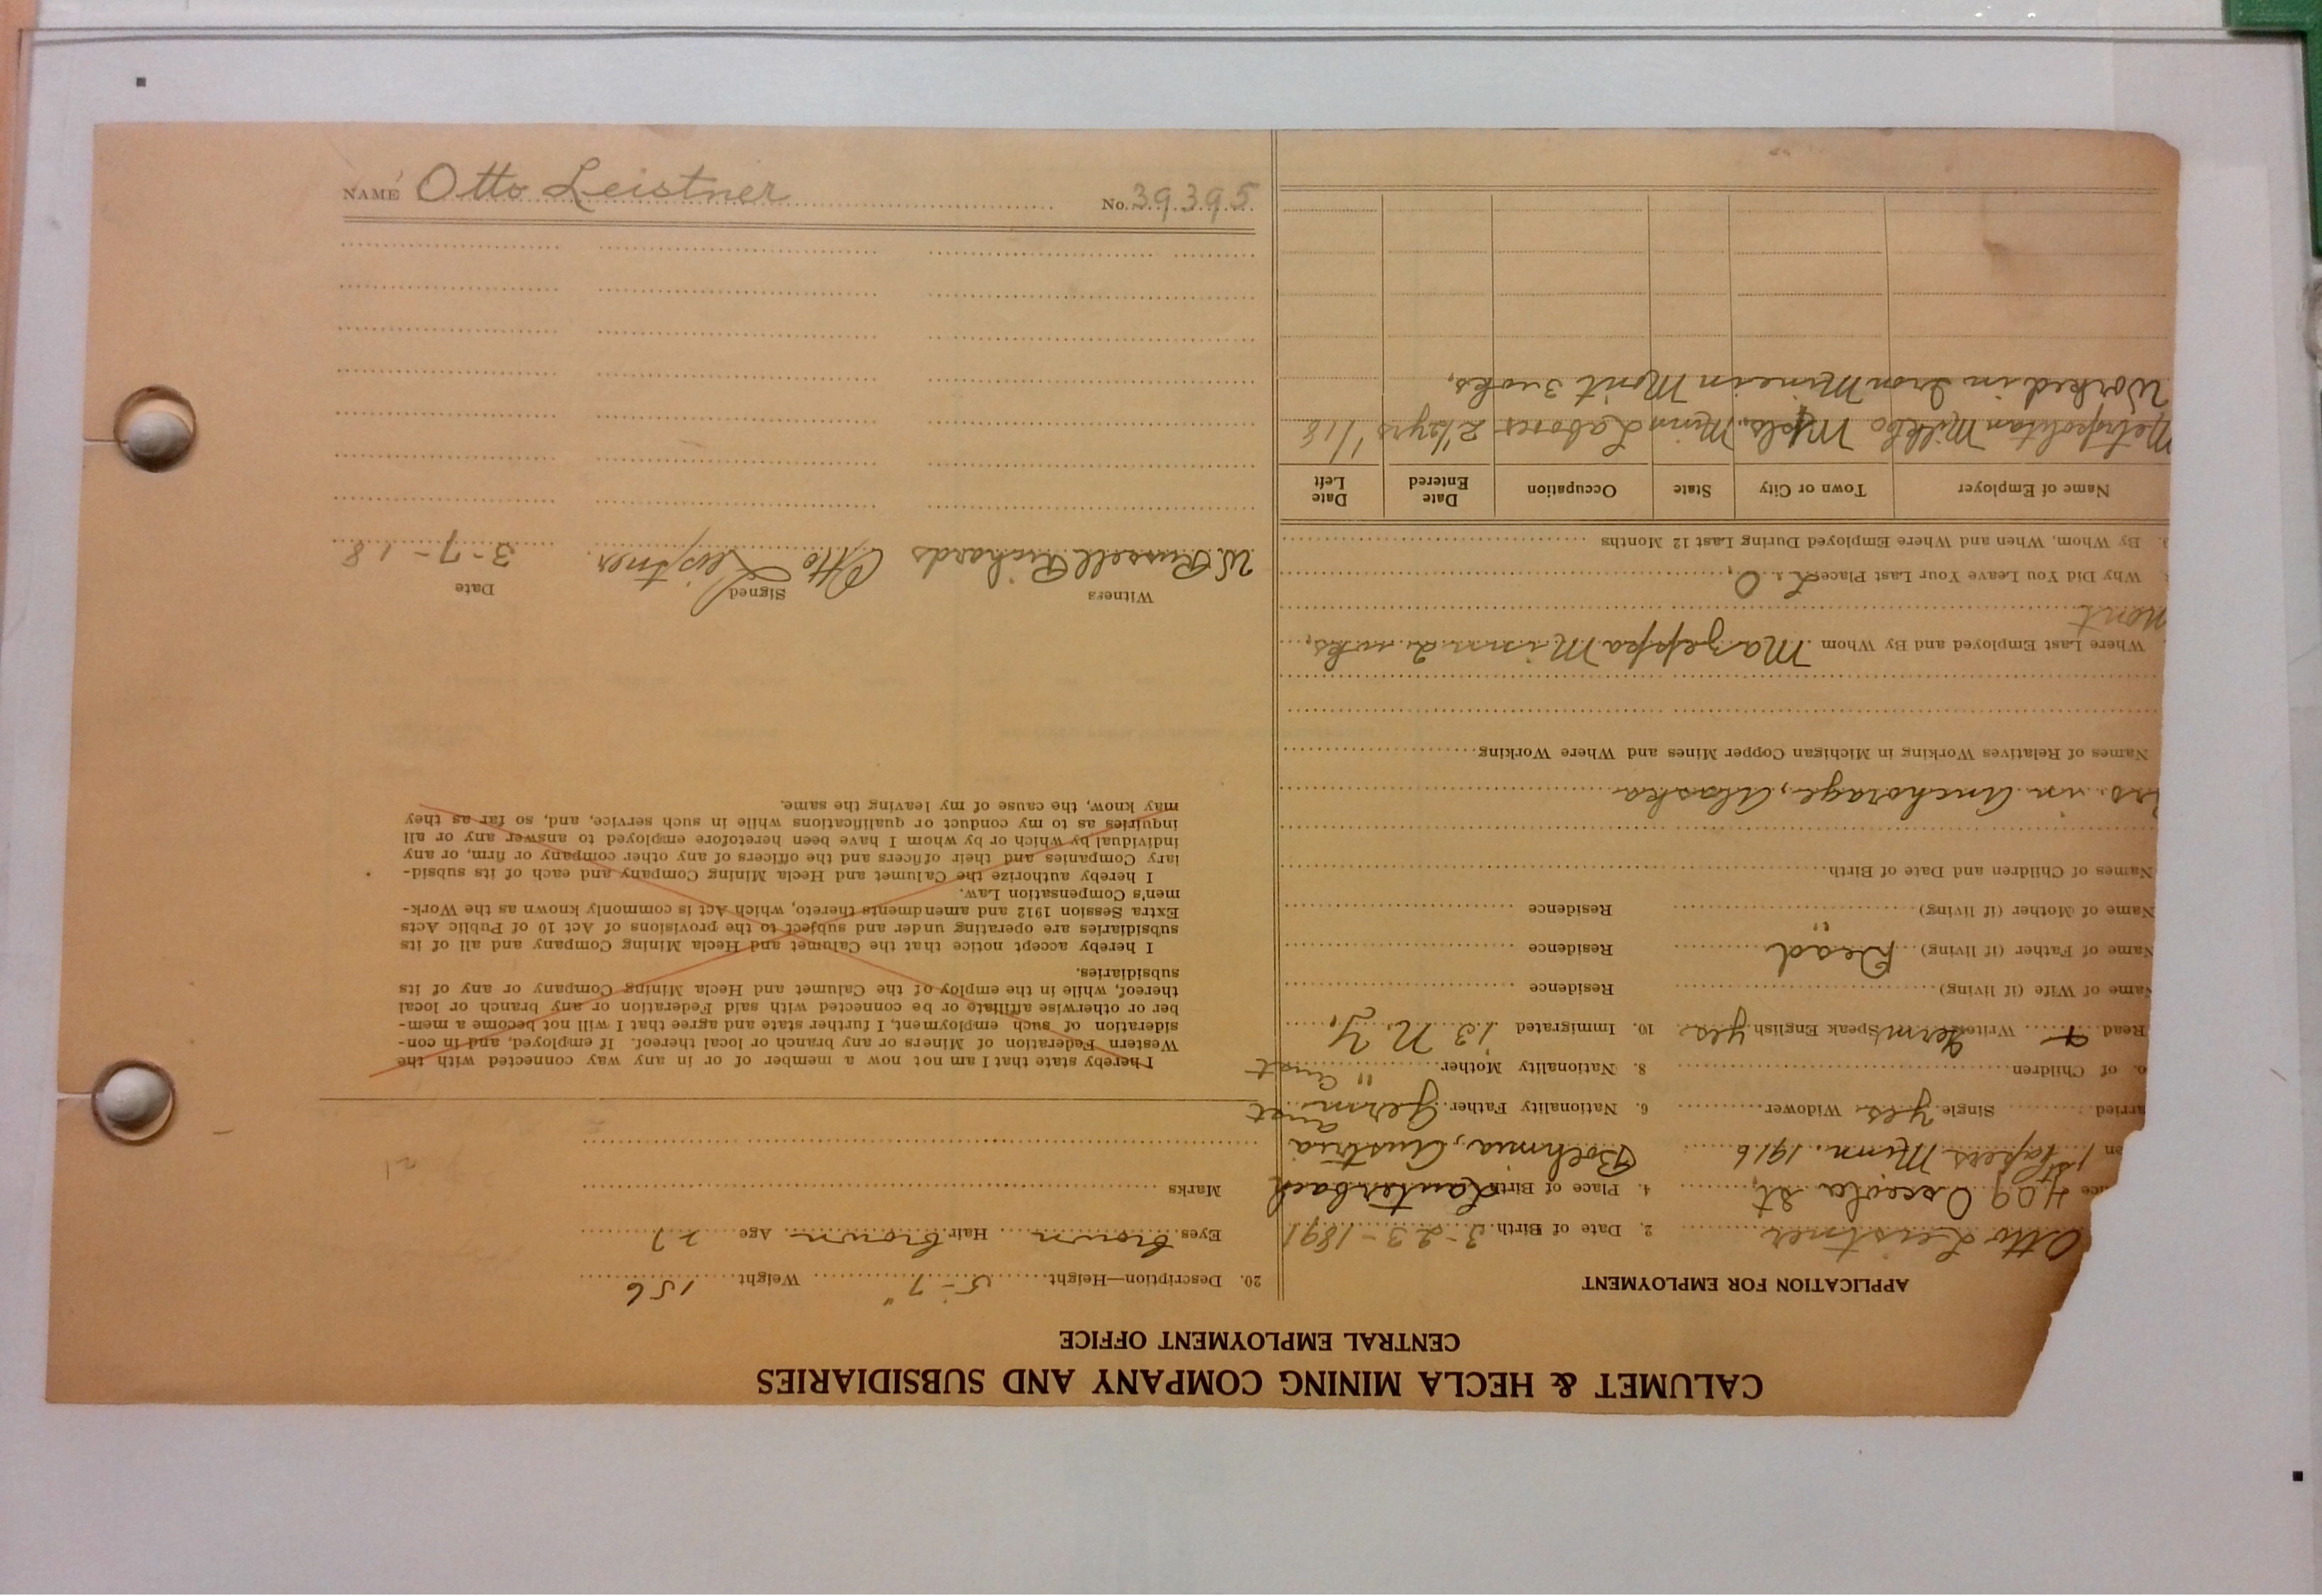 CALUMET & HECLA MINING COMPANY AND SUBSIDIARIES
CENTRAL EMPLOYMENT OFFICE
APPLICATION FOR EMPLOYMENT
Otto Leistner 2. Date of Birth 3-23-1891
409 Osceola St. 4. Place of Birth Lauterbach
1st papers Minn. 1916 Bohmia, Austria
arried Single yes Widower 6. Nationality Father Germ Aust
o. of Children 8. Nationality Mother " Aust
Read + Write Germ Speak English yes 10. Immigrated 13 N. Y.
Name of Wife (if living) Residence
Name of Father (if living) Dead Residence
Name of Mother (if living) " Residence
Names of Children and Date of Birth
Bro. in Anchorage, Alaska
Names of Relatives Working in Michigan Copper Mines and Where Working
Where Last Employed and By Whom Mazeppa Minn 2 wks,
Mont
Why Did You Leave Your Last Place L. O.
By Whom, When and Where Employed During Last 12 Months
Name of Employer Town or City State Occupation Date Entered Date Left
Metropolitan Milk Co Mpls, Minn Laborer 2 1/2 yrs 1/18
Worked in Iron Mine in Mont 3 wks,
20. Description—Height 5-7" Weight 156
Eyes brown Hair brown Age 27
Marks
I hereby state that I am not now a member of or in any way connected with the
Western Federation of Miners or any branch or local thereof. If employed, and in con-
sideration of such employment, I further state and agree that I will not become a mem-
ber or otherwise affiliate or be connected with said Federation or any branch or local
thereof, while in the employ of the Calumet and Hecla Mining Company or any of its
subsidiaries.
I hereby accept notice that the Calumet and Hecla Mining Company and all of its
subsidiaries are operating under and subject to the provisions of Act 10 of Public Acts
Extra Session 1912 and amendments thereto, which Act is commonly known as the Work-
men's Compensation Law.
I hereby authorize the Calumet and Hecla Mining Company and each of its subsid-
iary Companies and their officers and the officers of any other company or firm, or any
individual by which or by whom I have been heretofore employed to answer any or all
inquiries as to my conduct or qualifications while in such service, and, so far as they
may know, the cause of my leaving the same.
Witness Signed Date
W. Russell Richards Otto Leistner 3-7-18
NAME Otto Leistner No. 39395